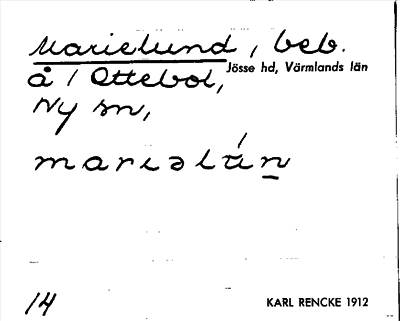 Marielund, beb.
Jösse hd, Värmlands län
å / Ottebol,
Ny sn,
mariəlún
14
KARL RENCKE 1912